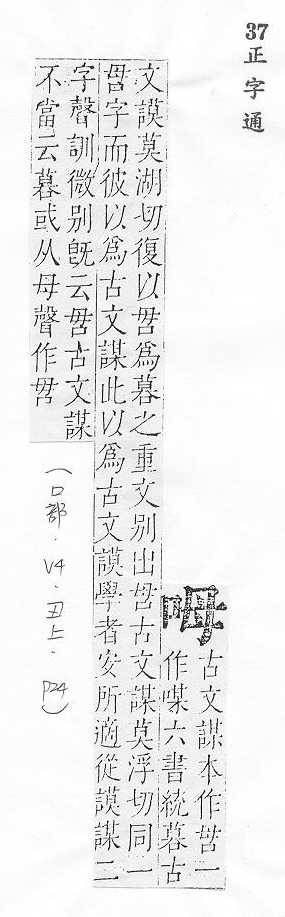 37正字通
呣
古文謀本作𠰔一
作㖼六書統暮古
文謨莫湖切復以𠰔爲暮之重文別出𠰔古文謀莫浮切同一
𠰔字而彼以爲古文謀此以爲古文謨學者安所適從謨謀二
字聲訓微别旣云𠰔古文謀
不當云暮或从母聲作𠰔
(口部.V4.丑上.P24)